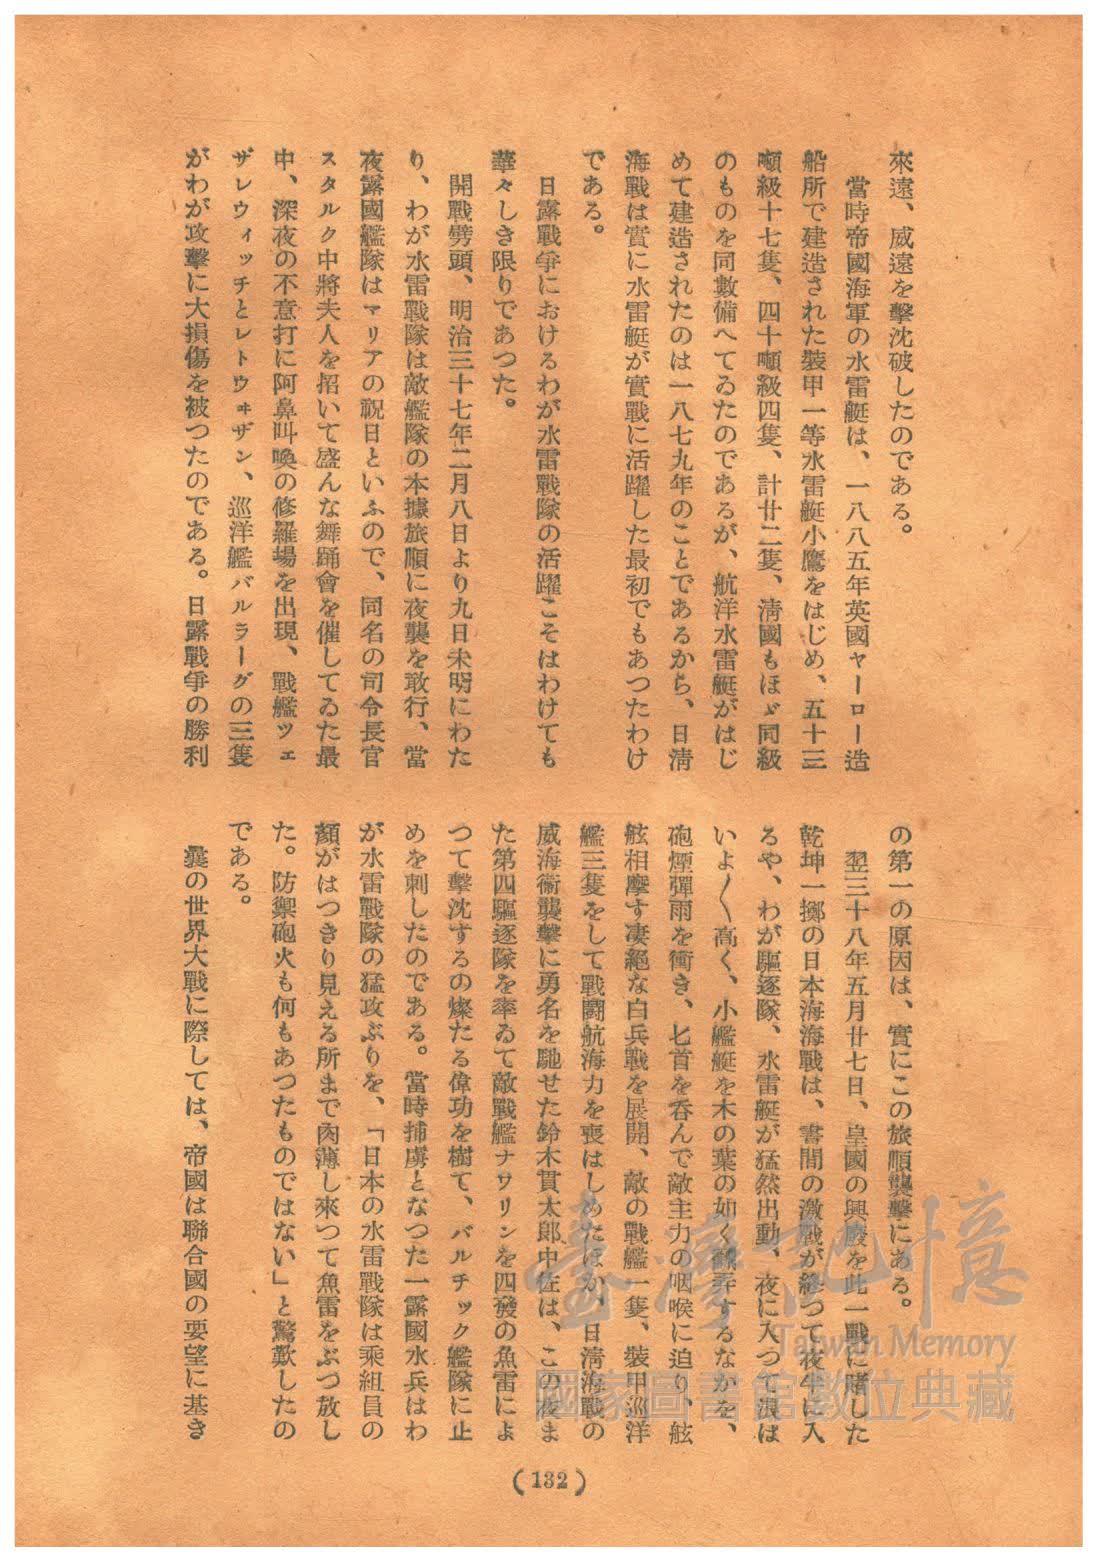 來遠、威遠を擊沈破したのである。
當時帝國海軍の水雷艇は、一八八五年英國ヤーロー造
船所で建造された裝甲一等水雷艇小鷹をはじめ、五十三
噸級十七隻、四十噸級四隻、計廿二隻、淸國もほゞ同級
のものを同數備へてゐたのであるが、航洋水雷艇がはじ
めて建造されたのは一八七九年のことであるから、日淸
海戰は實に水雷艇が實戰に活躍した最初でもあつたわけ
である。
日露戰爭におけるわが水雷戰隊の活躍こそはわけても
華々しき限りであつた。
開戰劈頭、明治三十七年二月八日より九日未明にわた
り、わが水雷戰隊は敵艦隊の本據旅順に夜襲を敢行、當
夜露國艦隊はマリアの祝日といふので、同名の司令長官
スタルク中將夫人を招いて盛んな舞踊會を催してゐた最
中、深夜の不意打に阿鼻叫喚の修羅場を出現、戰艦ツェ
ザレウィッチとレトウヰザン、巡洋艦バルラーグの三隻
がわが攻擊に大損傷を被つたのである。日露戰爭の勝利
の第一の原因は、實にこの旅順襲擊にある。
翌三十八年五月廿七日、皇國の興廢を此一戰に賭した
乾坤一擲の日本海海戰は、晝間の激戰が終つて夜半に入
るや、わが驅逐隊、水雷艇が猛然出動、夜に入つて浪は
いよ〱高く、小艦艇を木の葉の如く飜弄するなかを、
砲煙彈雨を衝き、匕首を呑んで敵主力の咽喉に迫り、舷
舷相摩す凄絕な白兵戰を展開、敵の戰艦一隻、裝甲巡洋
艦三隻をして戰鬪航海力を喪はしめたほか、日淸海戰の
威海衞襲擊に勇名を馳せた鈴木貫太郎中佐は、この夜ま
た第四驅逐隊を率ゐて敵戰艦ナワリンを四發の魚雷によ
つて擊沈するの燦たる偉功を樹て、バルチック艦隊に止
めを刺したのである。當時捕虜となつた一露國水兵はわ
が水雷戰隊の猛攻ぶりを、「日本の水雷戰隊は乘組員の
顏がはつきり見える所まで肉薄し來つて魚雷をぶつ放し
た。防禦砲火も何もあつたものではない」と驚歎したの
である。
曩の世界大戰に際しては、帝國は聯合國の要望に基き
(132)
臺灣記憶
Taiwan Memory
國家圖書館數位典藏